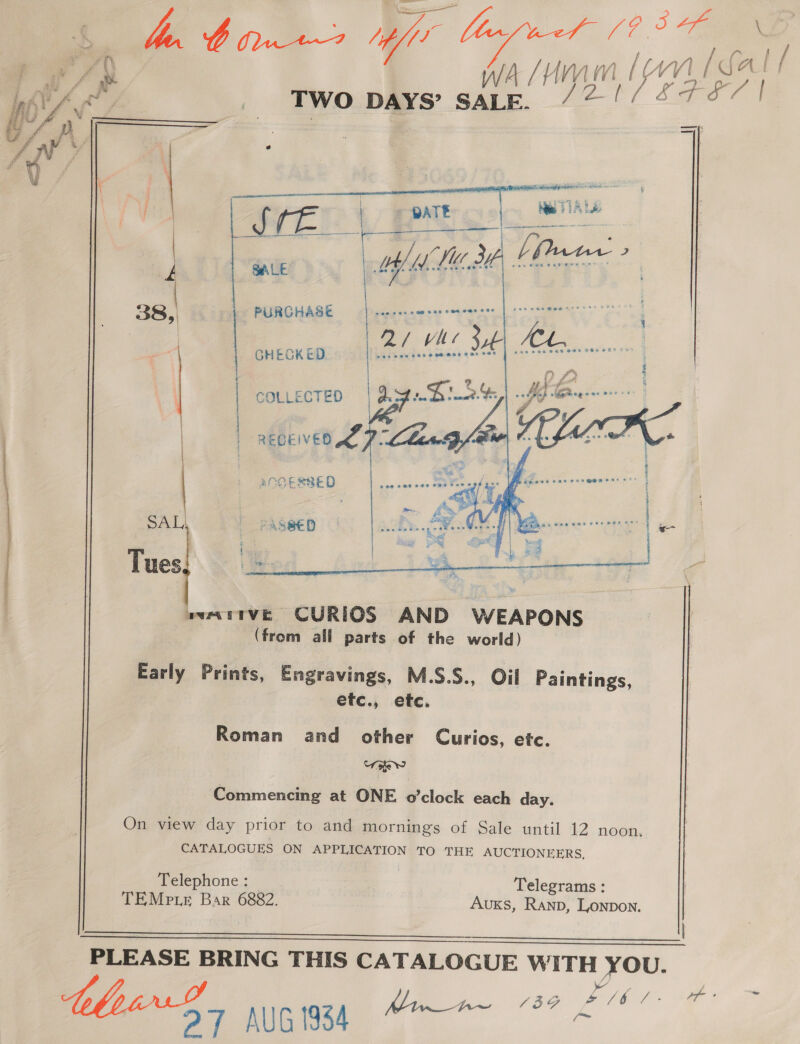 14/15 August 1934
WA/HMM/
TWO DAYS’ SALE.
original
STE DATE INITIALS
SALE 14/15 34
38,
PURCHASE
CHECKED 21 34
COLLECTED 27.8.34
RECEIVED 27th Aug/34 RWK.
ACCESSED
SAL
PASSED
Tues.
NATIVE CURIOS AND WEAPONS
(from all parts of the world)
Early Prints, Engravings, M.S.S., Oil Paintings,
etc., etc.
Roman and other Curios, etc.
Commencing at ONE o’clock each day.
On view day prior to and mornings of Sale until 12 noon.
CATALOGUES ON APPLICATION TO THE AUCTIONEERS.
Telephone : Telegrams :
TEMPLE BAR 6882. AUKS, RAND, LONDON.
PLEASE BRING THIS CATALOGUE WITH YOU.
Cleared
27 AUG 1934 139 £161.